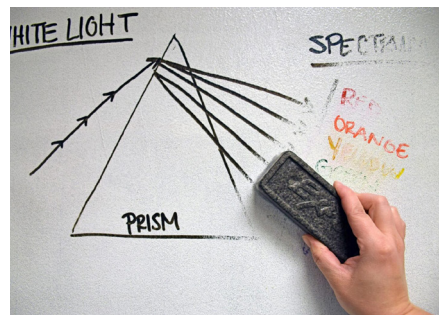 HITE LIGHT
SPECTRUM
RED
ORANGE
YELLOW
PRISM